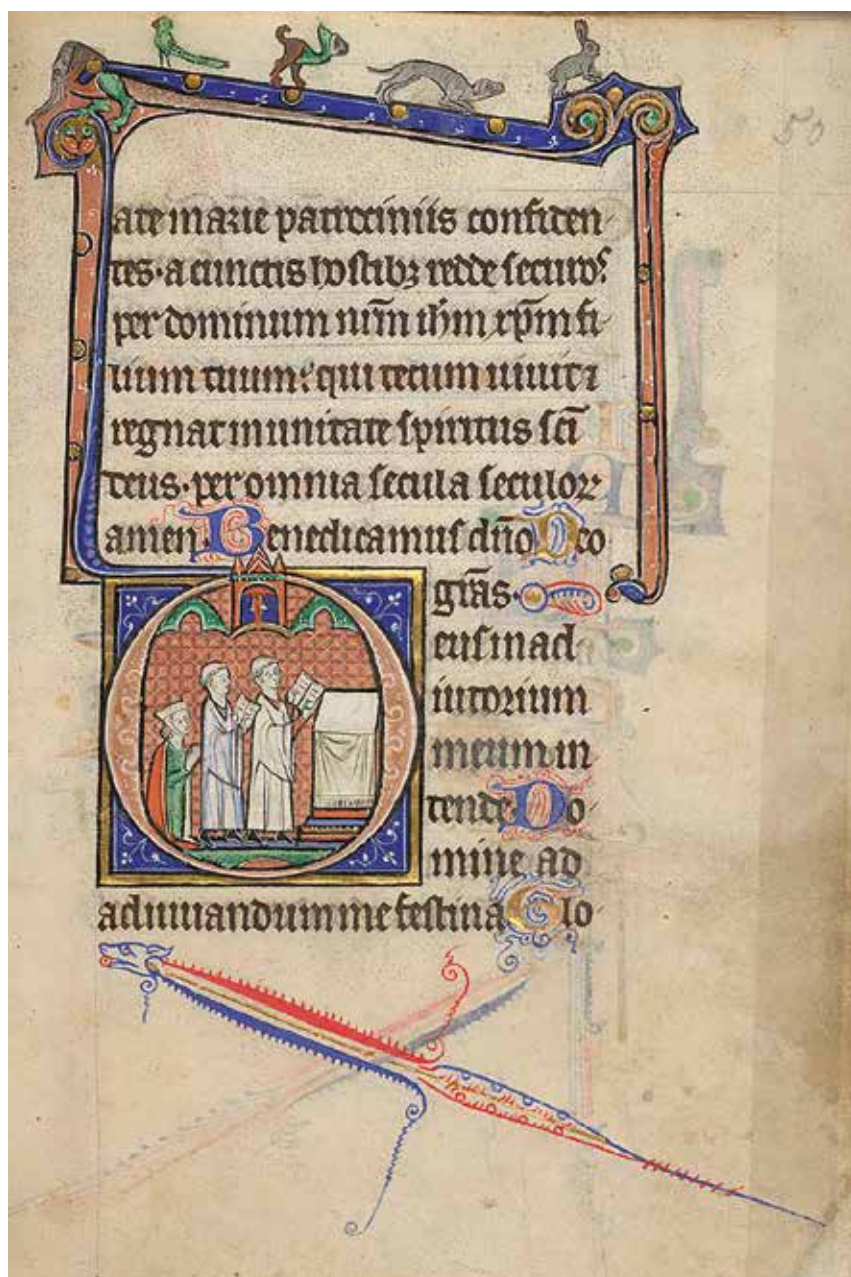 50
ate marie patrociniis confiden
tes·a cunctis hostibꝫ redde securos
per dominum nr̄m ihm̄ xp̄m fi
lium tuum: qui tecum uiuit ⁊
regnat in unitate spiritus sc̄i
deus·per omnia secula seculoꝝ
amen Benedicamus dn̄o Deo
gr̄as·
eus in ad
iutorium
meum in
tende Do
mine ad
adiuuandum me festina Glo